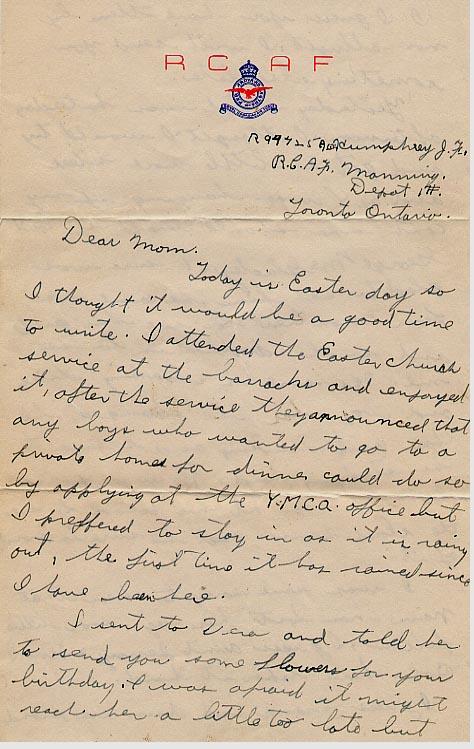 RCAF
R99425 Humphrey J.F.
R.C.A.F. Manning.
Depot 1H.
Toronto Ontario.
Dear Mom.
Today is Easter day so
I thought it would be a good time
to write. I attended the Easter church
service at the barracks and enjoyed
it, after the service they announced that
any boys who wanted to go to a
private homes for dinner could do so
by applying at the Y.M.C.A. office but
I preffered to stay in as it is rainy
out, the first time it has rained since
I have been here.
I sent to Vera and told her
to send you some flowers for your
birthday. I was afraid it might
reach her a little too late but